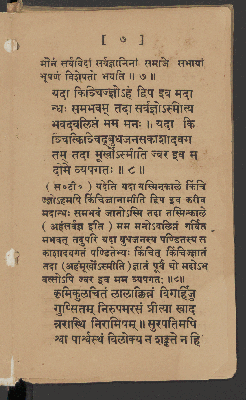 [ ७ ]
मौनं सर्वविदां सर्वज्ञानिनां समाजे सभायां
भूषणं विशेषतो भवति ॥ ७ ॥
यदा किञ्चिज्ज्ञोऽहं द्विप इव मदा
न्धः समभवम् तदा सर्वज्ञोऽस्मीत्य
भवदवलिप्तं मम मनः । यदा कि
ञ्चित्किञ्चिद्बुधजनसकाशादवग
तम् तदा मूर्खोऽस्मीति ज्वर इव म
दोमे व्यपगतः ॥ ८ ॥
( स॰टी॰ ) यदेति यदा यस्मिन्काले किंचि
ज्ज्ञोऽहमपि किंचिज्जानामीति द्विप इव करीव
मदान्धः समभवं जातोऽस्मि तदा तस्मिन्काले
( अहंसर्वज्ञ इति ) मम मनोऽवलिप्तं गर्वितं
मभवत् तदुपरि यदा बुधजनस्य पण्डितस्य स
काशादवगतं पण्डितेभ्यः किंचित् किंचिज्ज्ञातं
तदा (अहंमूर्खोऽस्मीति) ज्ञातं पूर्वं यो मदोऽभ
वत्सोऽपि ज्वर इव मम व्यपगतः ॥८॥
कृमिकुलचितं लालाक्लिन्नं विगर्हिजु
गुप्सितम् निरुपमरसं प्रीत्या खाद
न्नरास्थि निरामिषम् ॥ सुरपतिमपि
श्वा पार्श्वस्थं विलोक्य न शङ्कते न हि